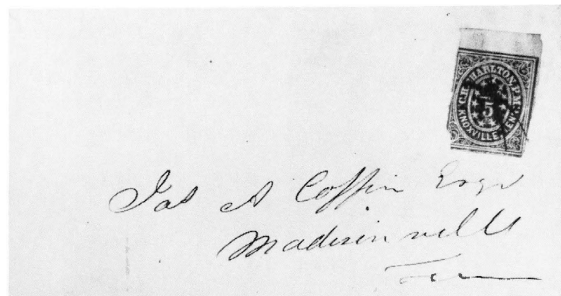 C.H. CHARLTON. P.M.
5
KNOXVILLE, TENN.
Jas A Coffin Esqr
Madisinvills
Ten